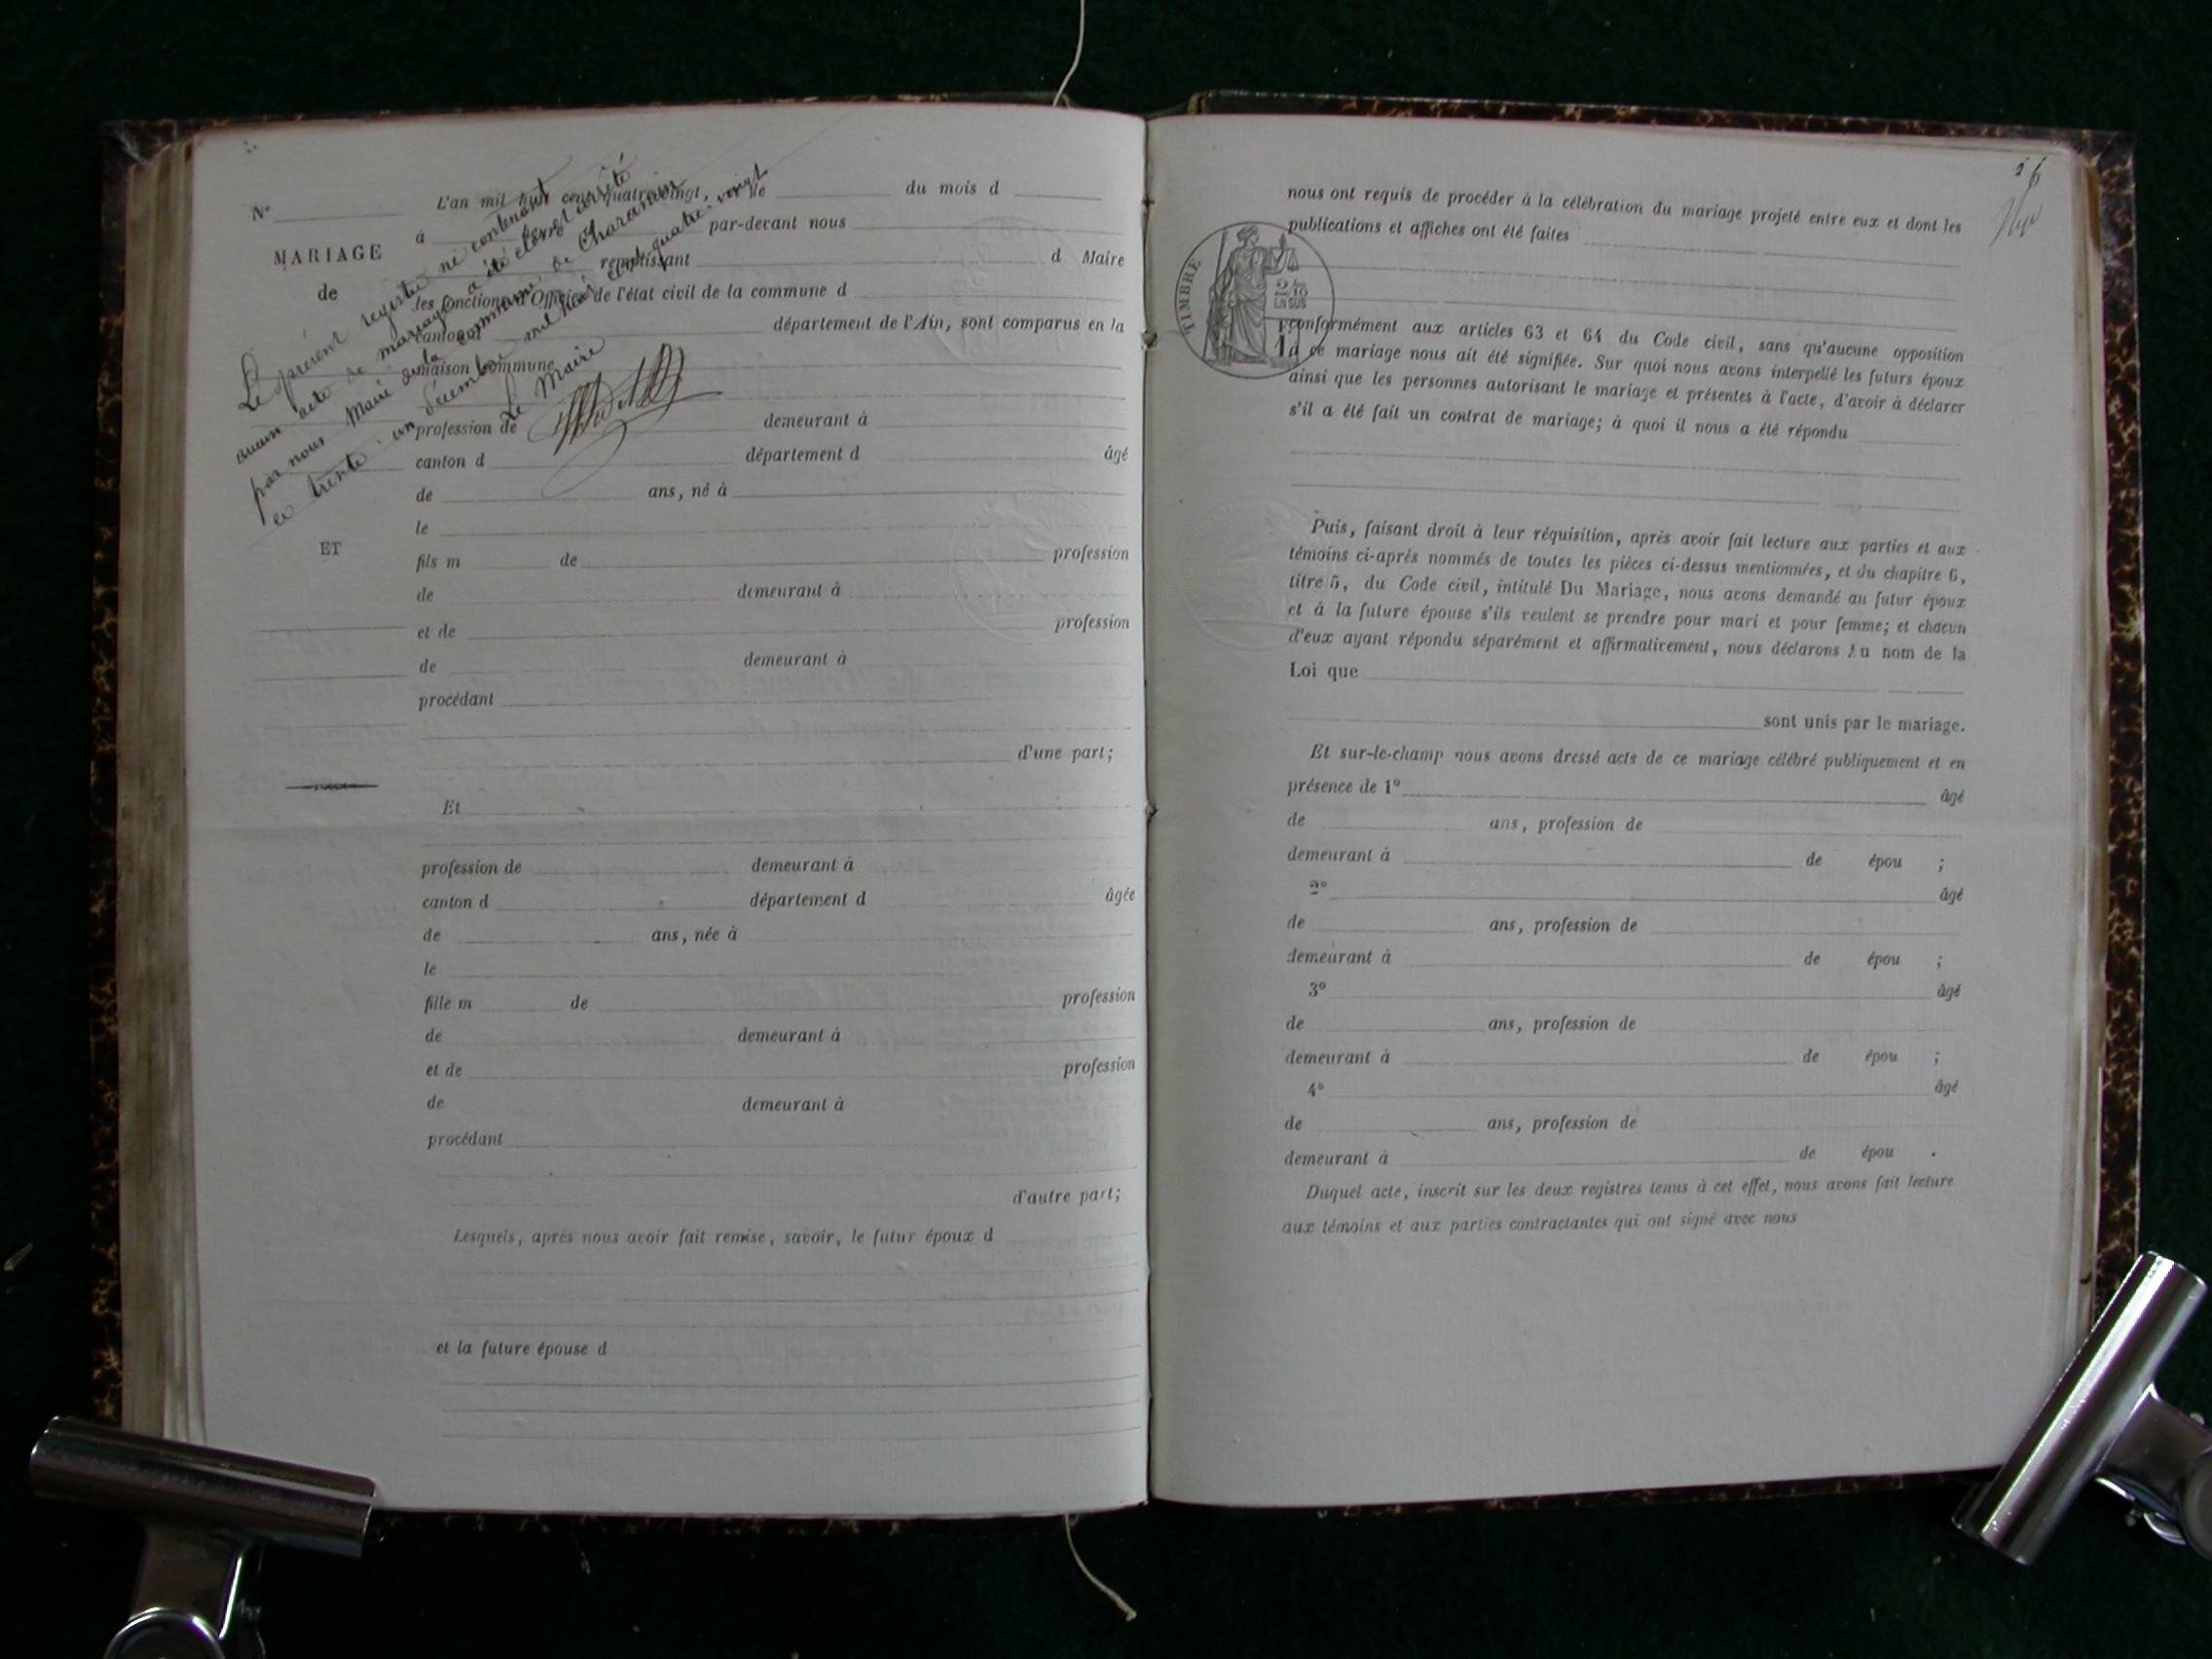 Le présent registre ne contenant
aucun acte de mariage a été clos et arrêté
par nous Maire de la commune de Charancin
ce trente-un décembre mil huit cent quatre-vingt
Le Maire
N°
MARIAGE
de
ET
L'an mil huit cent quatre-vingt, le du mois d
à par-devant nous
remplissant d Maire
les fonctions d'Officier de l'état civil de la commune d
canton d département de l'Ain, sont comparus en la
maison commune
profession de demeurant à
canton d département d âgé
de ans, né à
le
fils m de profession
de demeurant à
et de profession
de demeurant à
procédant
d'une part;
Et
profession de demeurant à
canton d département d âgée
de ans, née à
le
fille m de profession
de demeurant à
et de profession
de demeurant à
procédant
d'autre part;
Lesquels, après nous avoir fait remise, savoir, le futur époux d
et la future épouse d
16
nous ont requis de procéder à la célébration du mariage projeté entre eux et dont les
publications et affiches ont été faites
TIMBRE
2/10
EN SUS
conformément aux articles 63 et 64 du Code civil, sans qu'aucune opposition
à ce mariage nous ait été signifiée. Sur quoi nous avons interpellé les futurs époux
ainsi que les personnes autorisant le mariage et présentes à l'acte, d'avoir à déclarer
s'il a été fait un contrat de mariage; à quoi il nous a été répondu
Puis, faisant droit à leur réquisition, après avoir fait lecture aux parties et aux
témoins ci-après nommés de toutes les pièces ci-dessus mentionnées, et du chapitre 6,
titre 5, du Code civil, intitulé Du Mariage, nous avons demandé au futur époux
et à la future épouse s'ils veulent se prendre pour mari et pour femme; et chacun
d'eux ayant répondu séparément et affirmativement, nous déclarons Au nom de la
Loi que
sont unis par le mariage.
Et sur-le-champ nous avons dressé acte de ce mariage célébré publiquement et en
présence de 1° âgé
de ans, profession de
demeurant à de épou ;
2° âgé
de ans, profession de
demeurant à de épou ;
3° âgé
de ans, profession de
demeurant à de épou ;
4° âgé
de ans, profession de
demeurant à de épou .
Duquel acte, inscrit sur les deux registres tenus à cet effet, nous avons fait lecture
aux témoins et aux parties contractantes qui ont signé avec nous